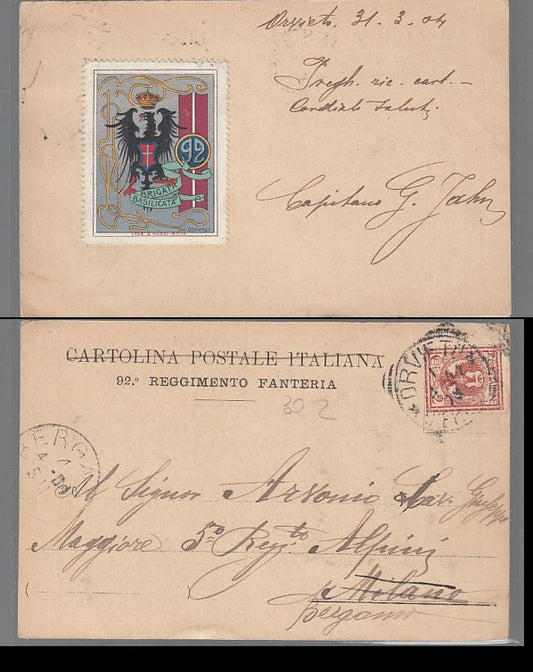 Orvieto. 31. 3. 04
Pregh. ric. cart. -
Cordiali Saluti
Capitano G. Jahn
92
BRIGATA
BASILICATA
CARTOLINA POSTALE ITALIANA
92.° REGGIMENTO FANTERIA
302
ORVIETO
BERGA
Al Signor Arsonio Cav. Giuseppe
Maggiore 5° Regg.to Alpini
Milano
Bergamo